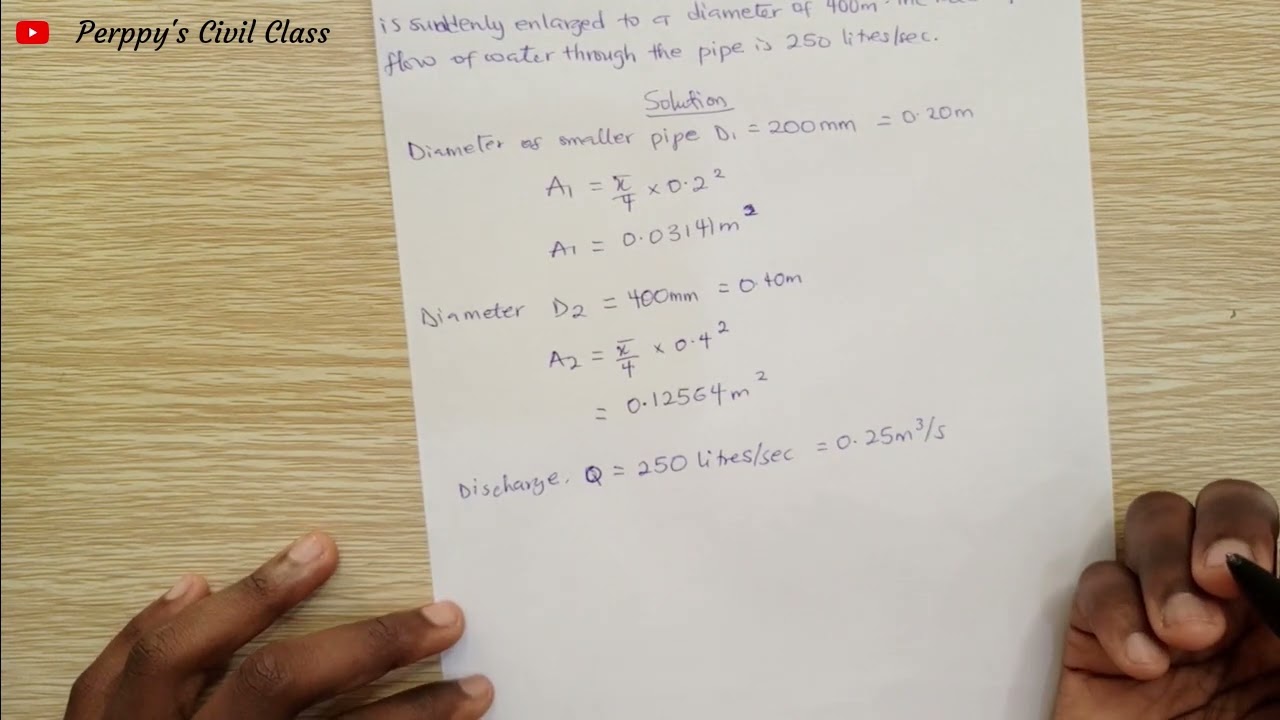 Perppy's Civil Class
is suddenly enlarged to a diameter of 400m. The
flow of water through the pipe is 250 litres/sec.
Solution
Diameter of smaller pipe D₁ = 200mm = 0.20m
A₁ = π/4 × 0.2²
A₁ = 0.03141m²
Diameter D₂ = 400mm = 0.40m
A₂ = π/4 × 0.4²
= 0.12564m²
Discharge. Q = 250 litres/sec = 0.25m³/s